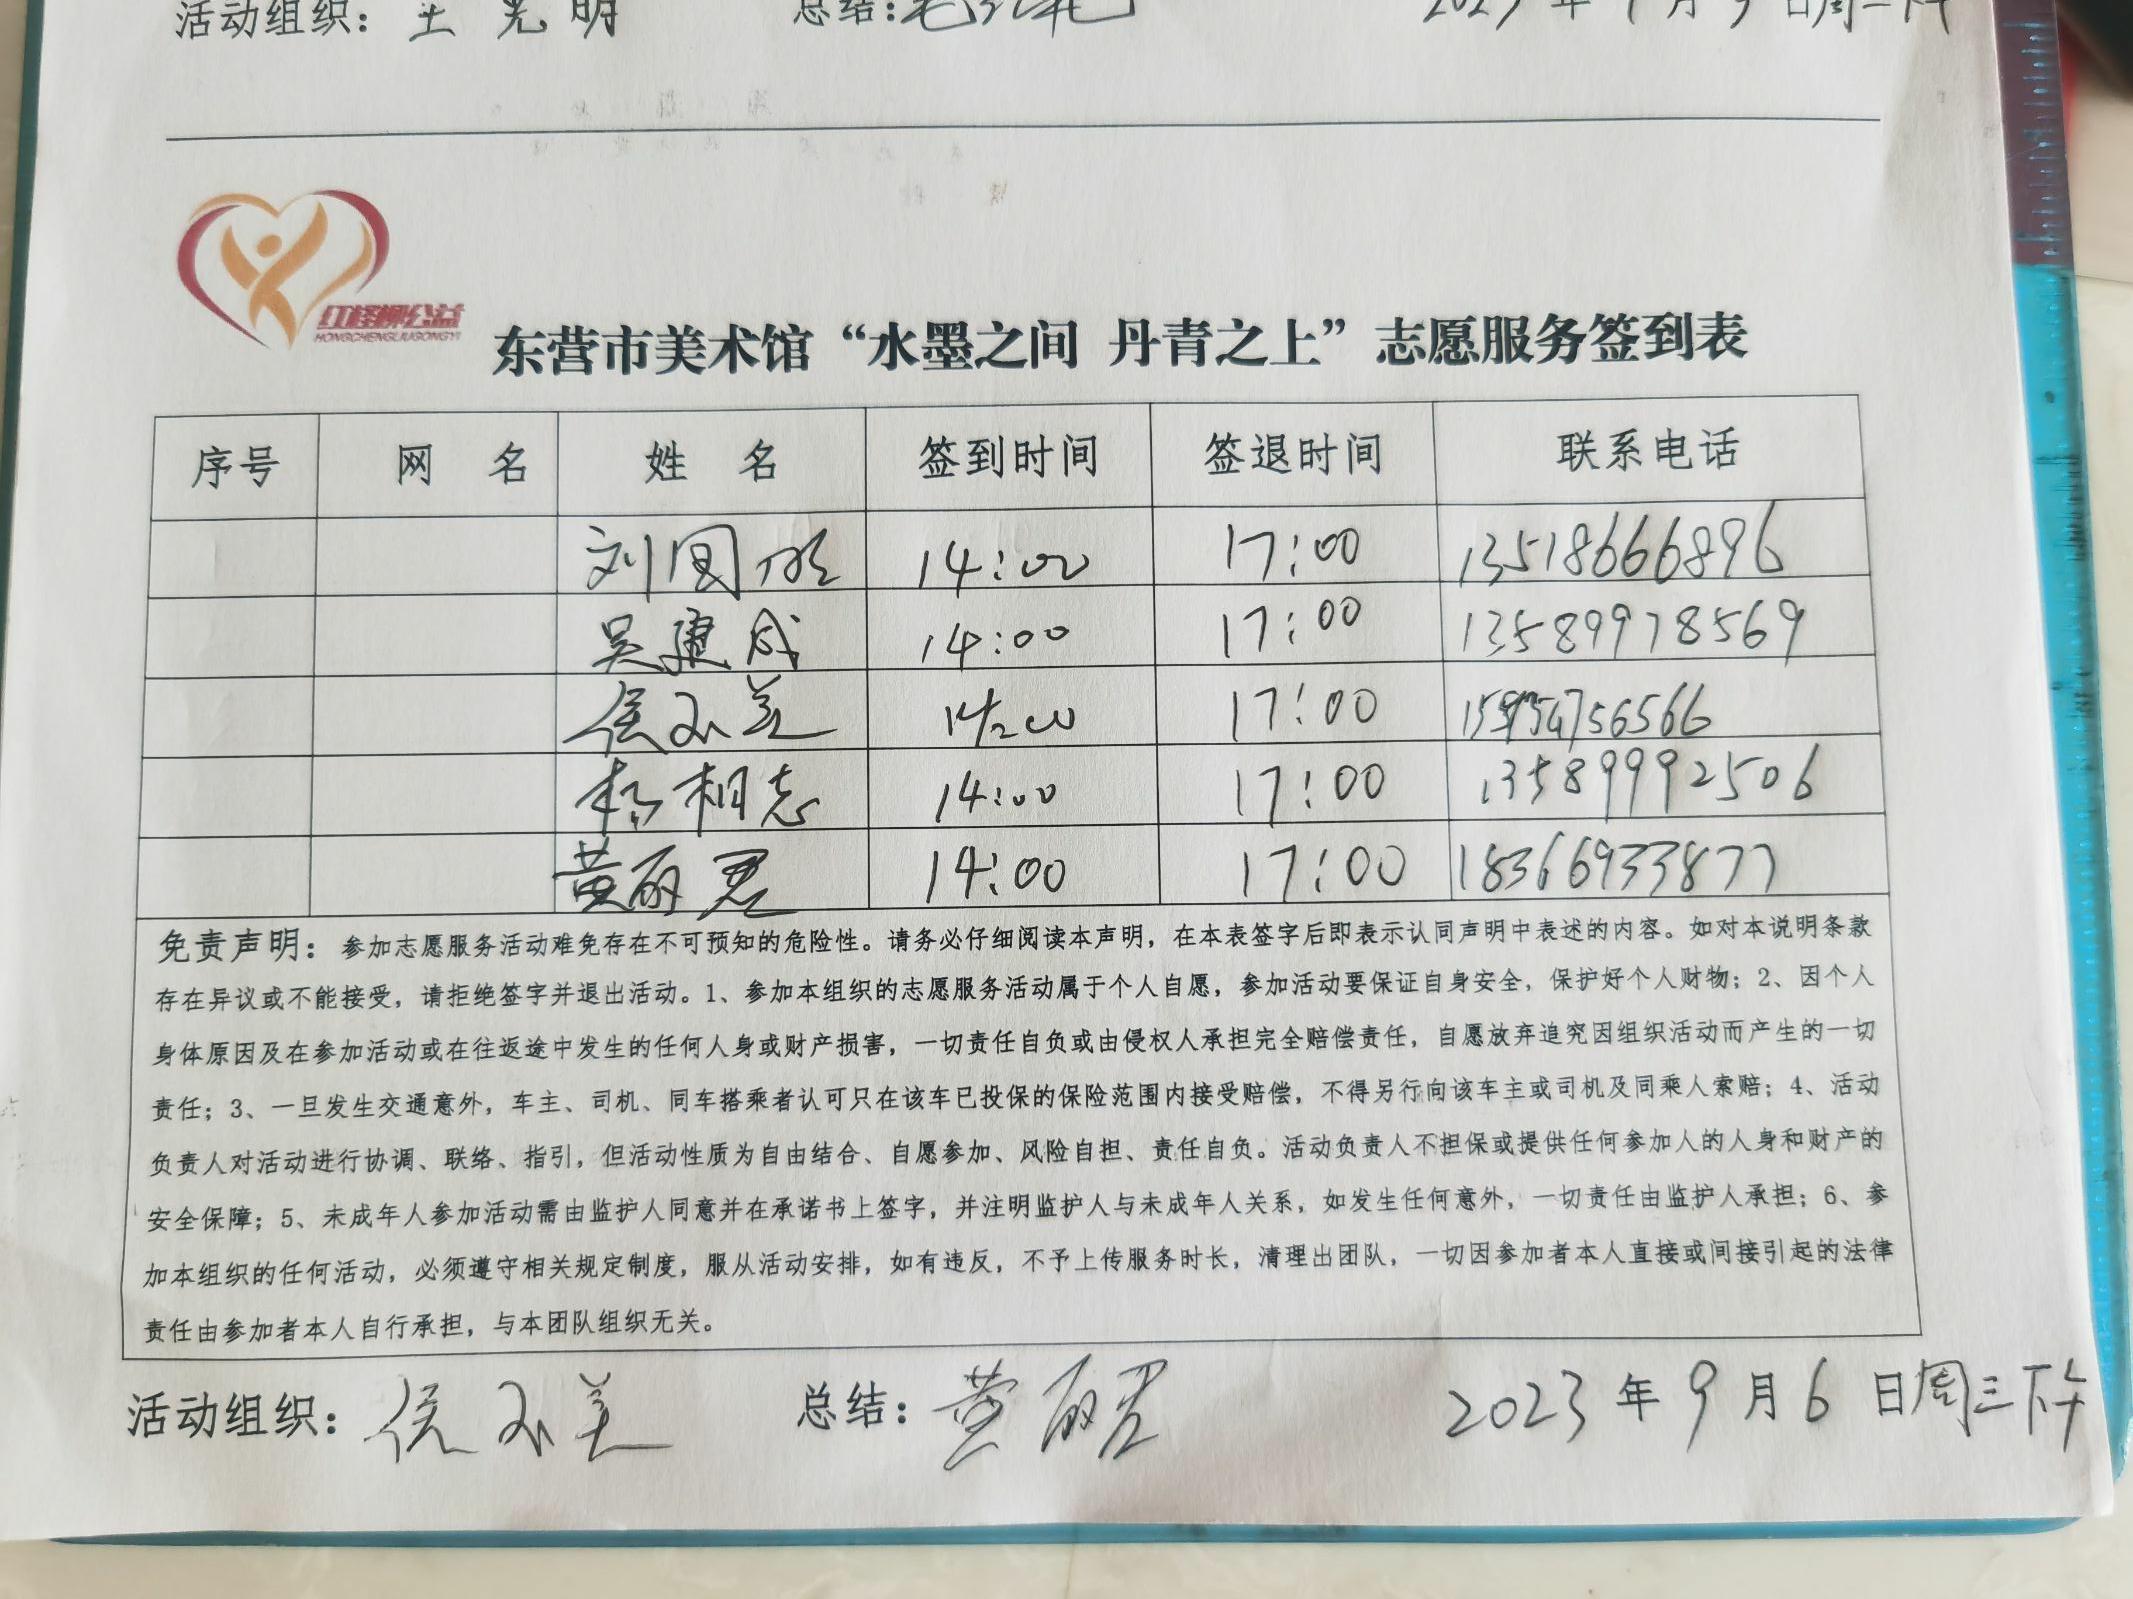 活动组织：王光明 总结：
红柽柳公益
HONGCHENGLIUGONGYI
东营市美术馆“水墨之间 丹青之上”志愿服务签到表
序号 网 名 姓 名 签到时间 签退时间 联系电话
刘国明 14:00 17:00 13518666896
吴建成 14:00 17:00 13589978569
侯小美 14:00 17:00 15954756566
杨相志 14:00 17:00 13589992506
黄丽君 14:00 17:00 18366933877
免责声明：参加志愿服务活动难免存在不可预知的危险性。请务必仔细阅读本声明，在本表签字后即表示认同声明中表述的内容。如对本说明条款
存在异议或不能接受，请拒绝签字并退出活动。1、参加本组织的志愿服务活动属于个人自愿，参加活动要保证自身安全，保护好个人财物；2、因个人
身体原因及在参加活动或在往返途中发生的任何人身或财产损害，一切责任自负或由侵权人承担完全赔偿责任，自愿放弃追究因组织活动而产生的一切
责任；3、一旦发生交通意外，车主、司机、同车搭乘者认可只在该车已投保的保险范围内接受赔偿，不得另行向该车主或司机及同乘人索赔；4、活动
负责人对活动进行协调、联络、指引，但活动性质为自由结合、自愿参加、风险自担、责任自负。活动负责人不担保或提供任何参加人的人身和财产的
安全保障；5、未成年人参加活动需由监护人同意并在承诺书上签字，并注明监护人与未成年人关系，如发生任何意外，一切责任由监护人承担；6、参
加本组织的任何活动，必须遵守相关规定制度，服从活动安排，如有违反，不予上传服务时长，清理出团队，一切因参加者本人直接或间接引起的法律
责任由参加者本人自行承担，与本团队组织无关。
活动组织：侯小美 总结：黄丽君 2023年9月6日周三下午